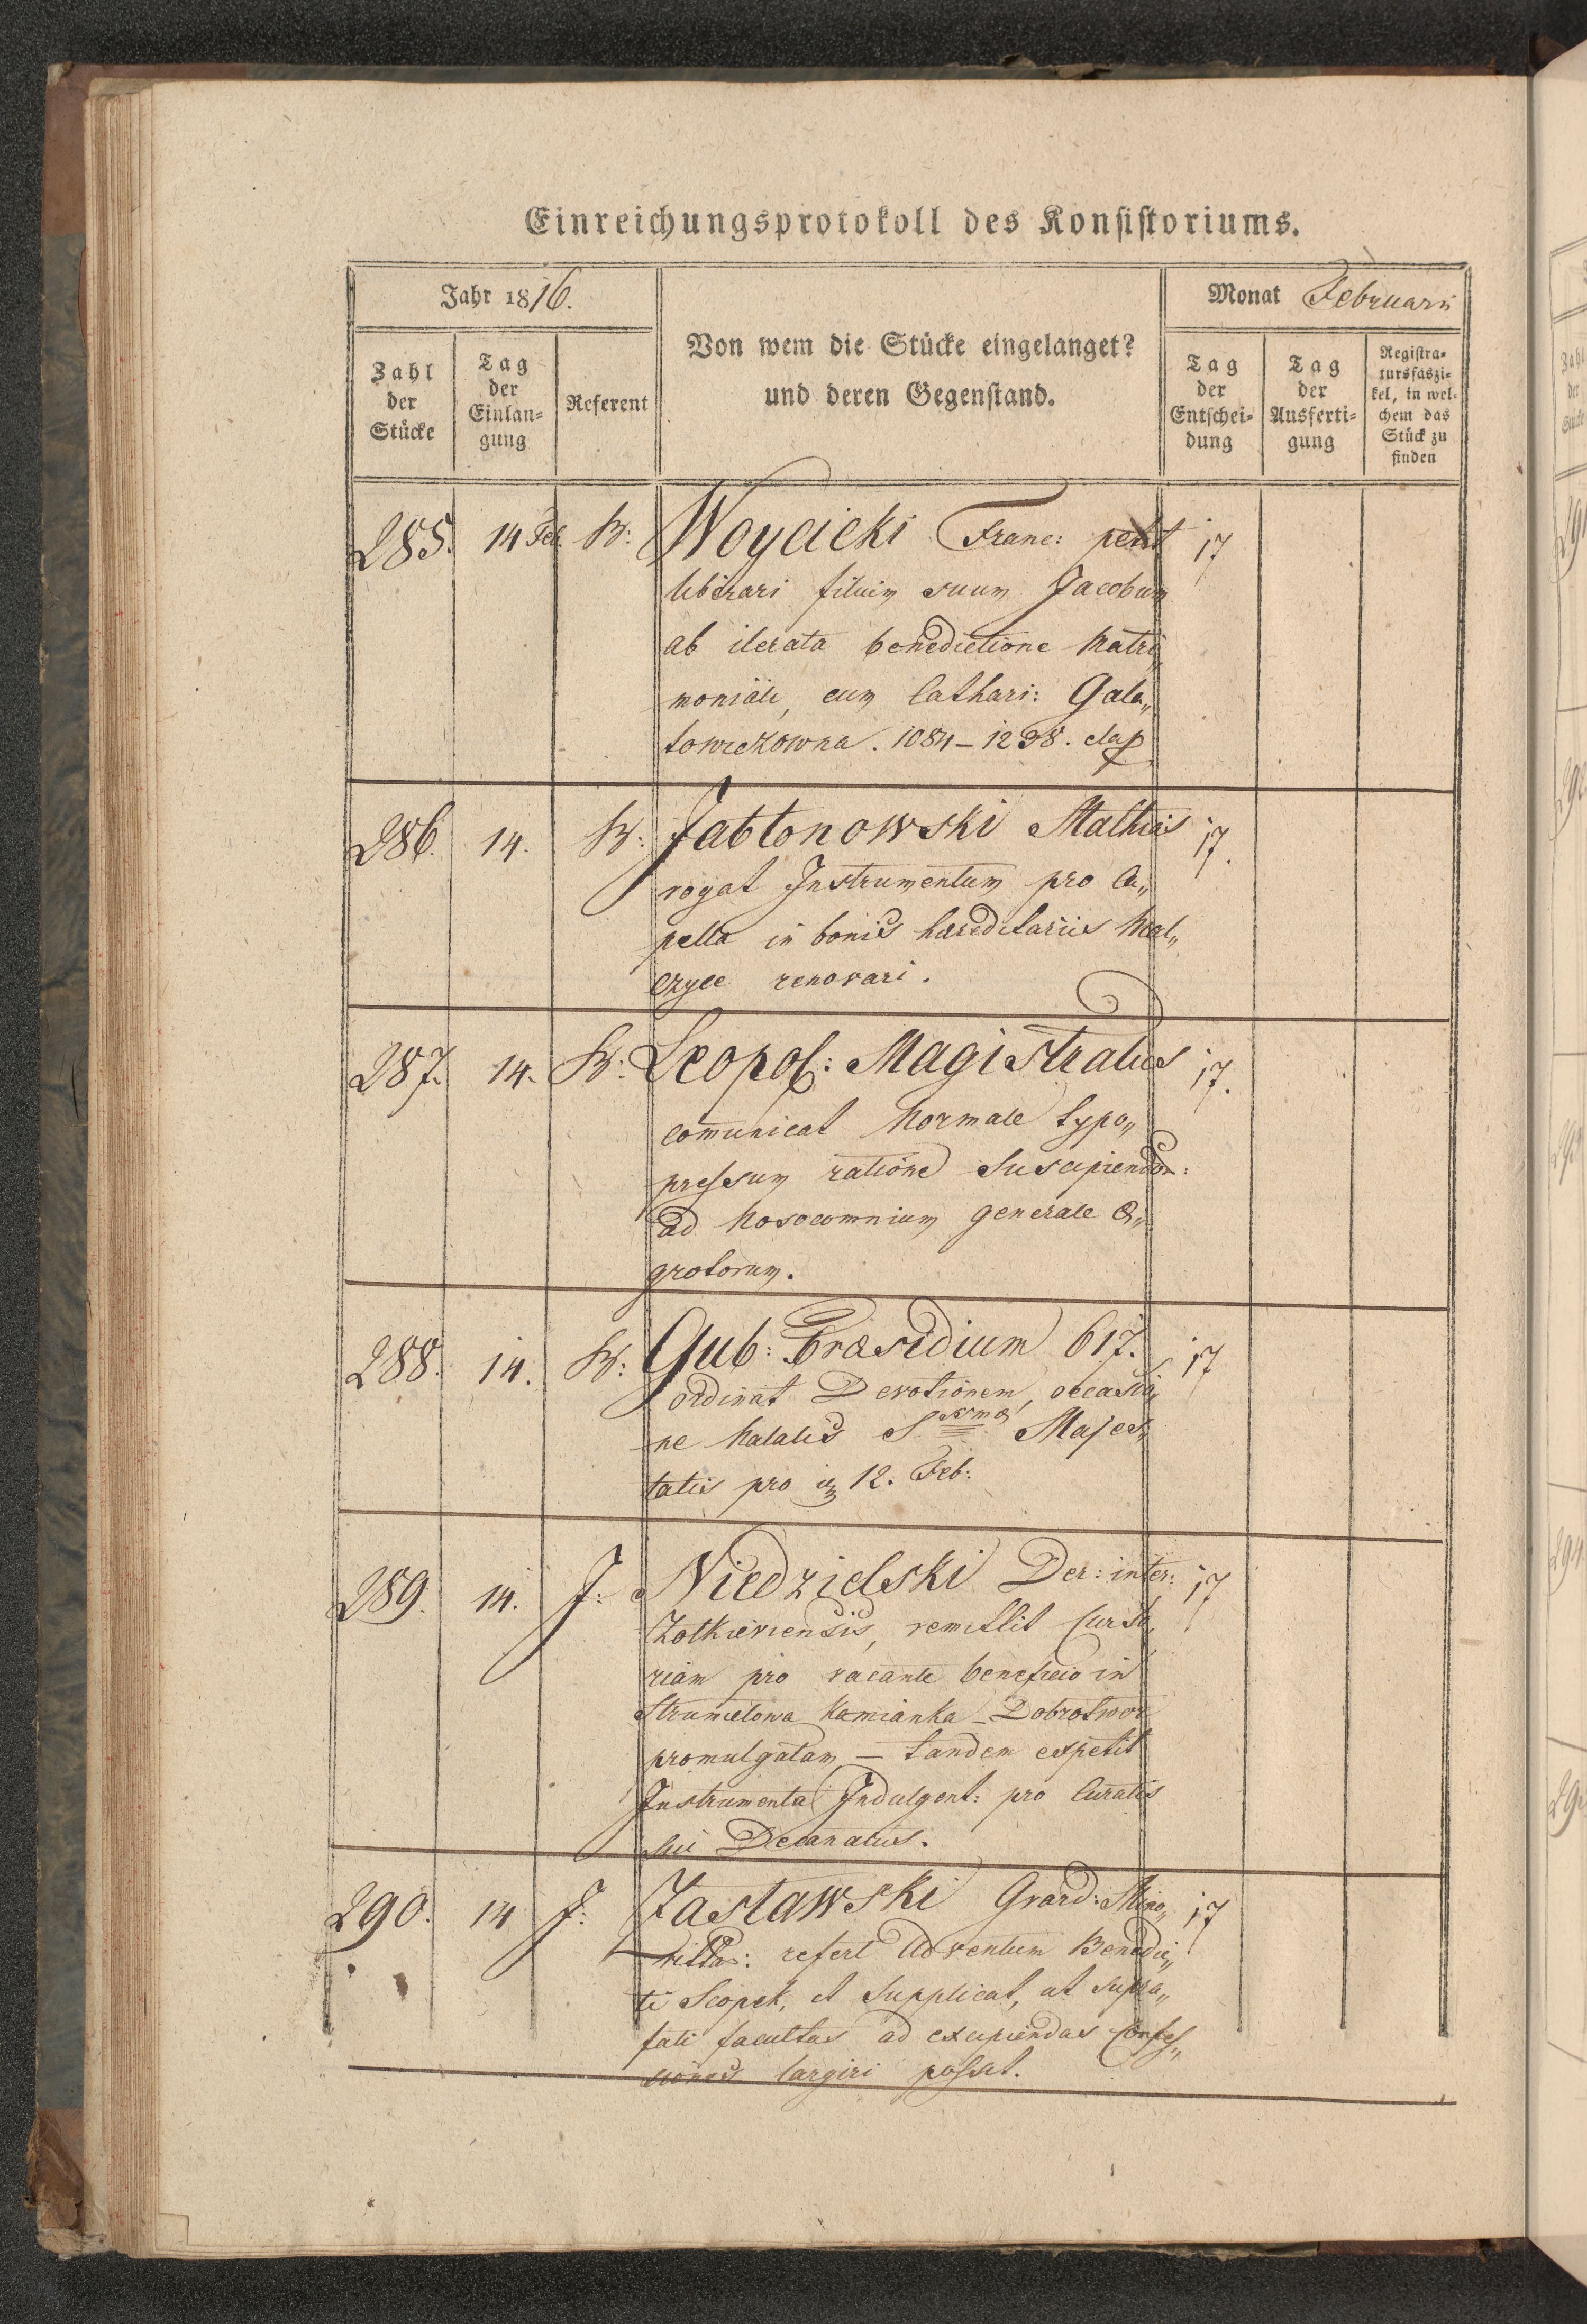 Einreichungsprotokoll des Konsistoriums.
Jahr 1816.
Monat Februarii
Zahl der Stücke
Tag der Einlan=gung
Referent
Von wem die Stücke eingelanget?
und deren Gegenstand.
Tag der Entschei=dung
Tag der Ausferti=gung
Registra=tursfaszi=kel, in wel=chem das Stück zu finden
285. 14 Feb. Woycicki Franc: petit 17
liberari filium suum Jacobum
ab iterata benedictione Matri„
moniali, cum Cathari: Gala„
towiczowna. 1084–1298. clap
286. 14. Jabłonowski Mathias 17.
rogat Instrumentum pro Ca„
pella in bonis hæreditariis Mal„
czyce renovari.
287. 14. Leopol: Magistratus 17.
comunicat Normale typo„
pressum ratione suscipiendor:
ad Nosocomnium generale Æ„
grotorum.
288. 14. Gub: Præsidium 617. 17
ordinat Devotionem, occasio„
ne Natalis Sssmæ Majes„
tatis pro 12. Feb:
289. 14. J: Niedzielski Dec: inter: 17
Zolkieviensis, remittit Curso„
riam pro vacante beneficio in
Strumielowa Kamianka – Dobrotwor
promulgatam – tandem expetit
Instrumenta Indulgent: pro Curatis
sui Decanatus.
290. 14 J: Zasławski Gvard: Mino„ 17
ritar: refert Adventum Benedic„
ti Scopek, et supplicat, ut supra„
fati facultas ad excipiendas Confes„
siones largiri posset.